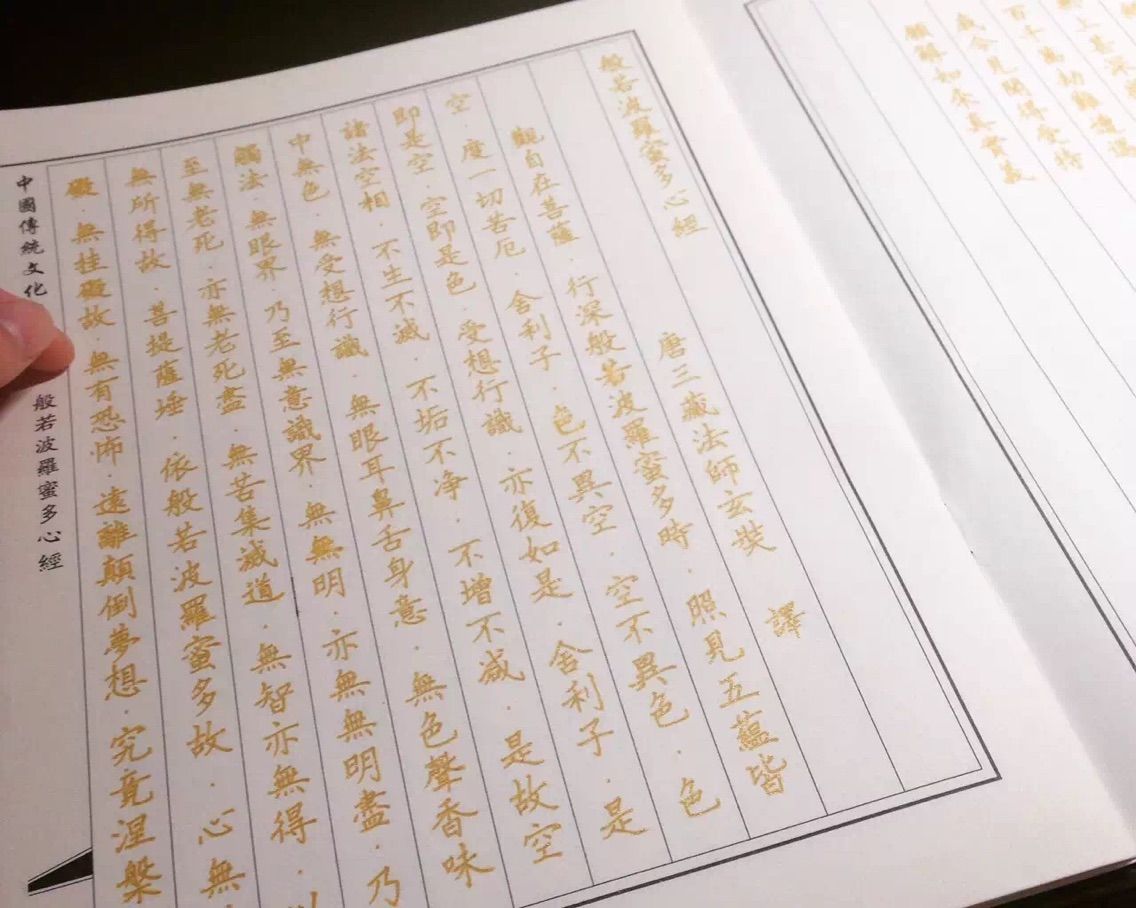 上甚深
百千萬劫難遭遇
我今見聞得受持
願解如來真實義
般若波羅蜜多心經
唐三藏法師玄奘 譯
觀自在菩薩·行深般若波羅蜜多時·照見五蘊皆
空 度一切苦厄·舍利子·色不異空·空不異色·色
即是空·空即是色·受想行識·亦復如是·舍利子·是
諸法空相·不生不滅·不垢不净·不增不减·是故空
中無色·無受想行識·無眼耳鼻舌身意·無色聲香味
觸法·無眼界·乃至無意識界·無無明·亦無無明盡·乃
至無老死·亦無老死盡·無苦集滅道·無智亦無得·
無所得故·菩提薩埵·依般若波羅蜜多故·心無
礙·無挂礙故·無有恐怖·遠離顛倒夢想·究竟涅槃
中國傳統文化 般若波羅蜜多心經